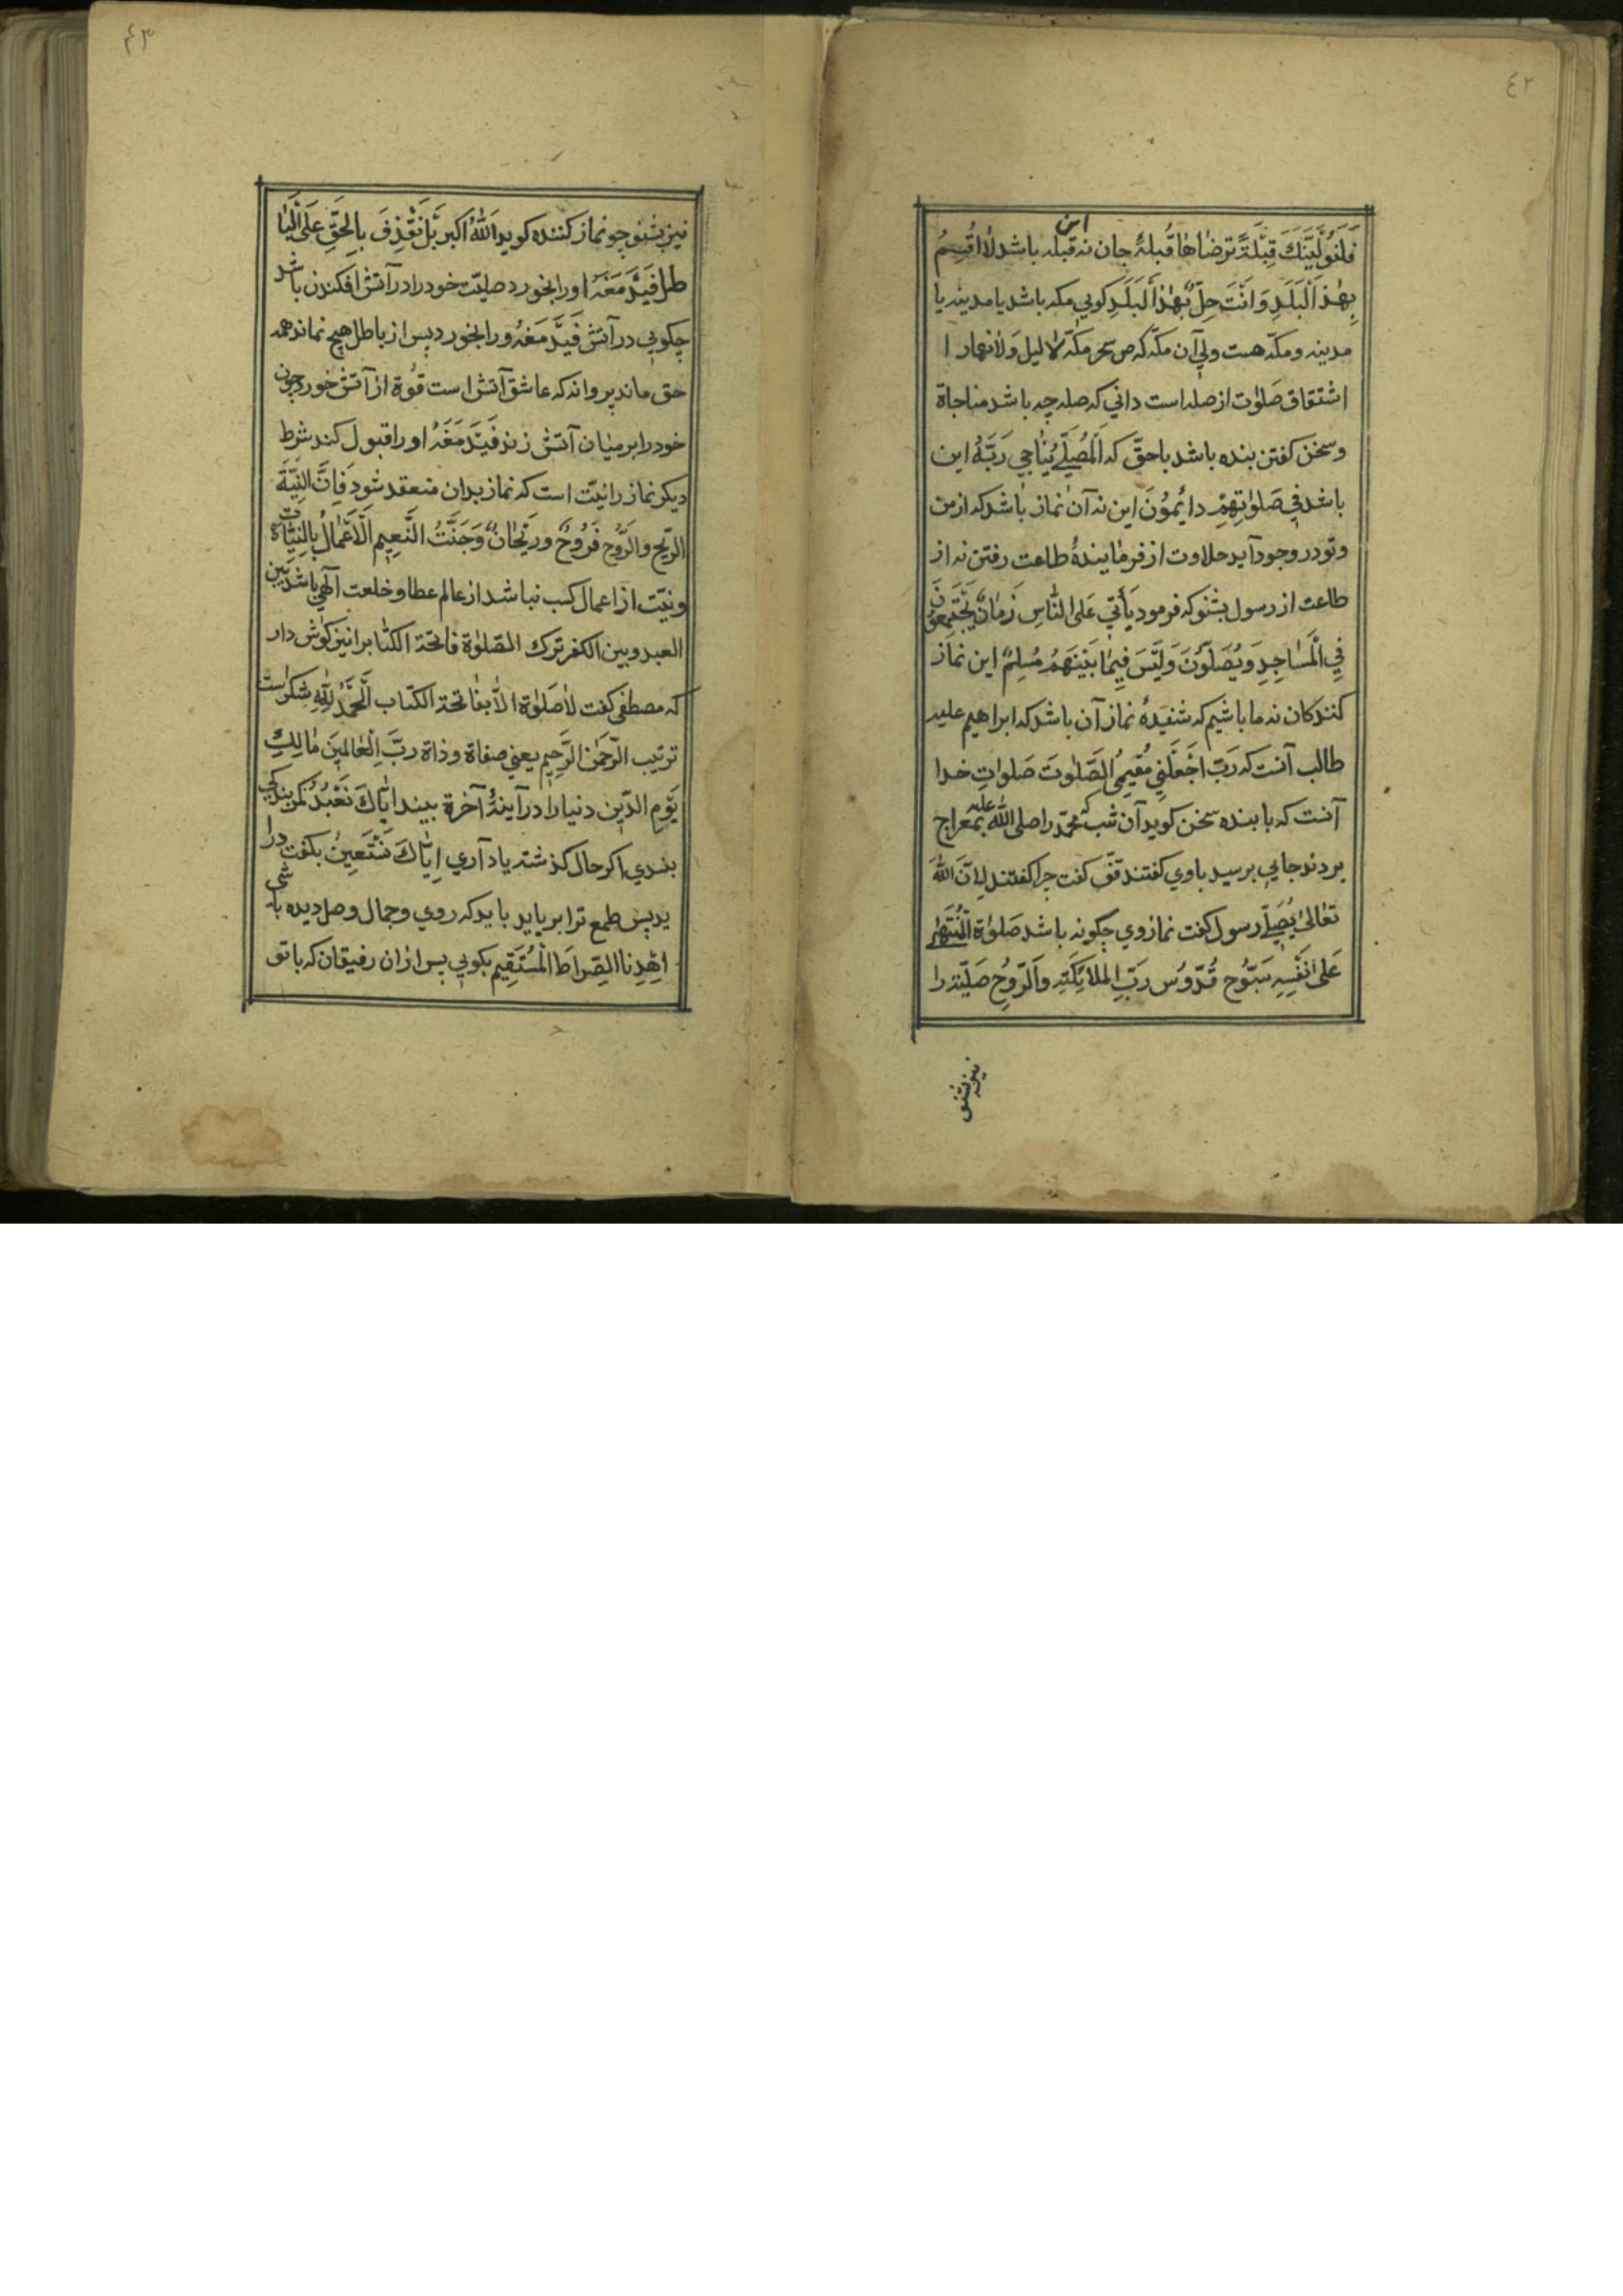 ٤٢
این
فَلَنُوَلِّيَنَّكَ قِبْلَةً تَرْضَاهَا قُبلهٔ جان نه قبله باشد لَا اُقْسِمُ
بِهٰذَ الْبَلَدِ وَاَنْتَ حِلٌّ بِهٰذَ الْبَلَدِ كوبي مكه باشد يا مدينه يا
مدينه ومكّه هست ولي آن مكّه كه ص حر مكّة لا ليل وَلا نهار ا
اشتقاق صَلوٰت از صله است داني كه صله چه باشد مناجاة
وسخن كفتن بنده باشد با حقّ كه اَلْمُصَلّے يُنَاجِي رَبَّهُ اين
باشد فِي صَلوٰتِهِمْ دائِمُوْنَ اين نه آن نماز باشد كه از من
وتو در وجود آيد حلاوت از فرمايندهٔ طاعت رفتن نه از
طاعت از رسول بشنو كه فرمود يَأتِي عَلَى النّاسِ زَمانٌ يَجْتَمِعُوْنَ
فِي الْمَسَاجِدِ وَيُصَلُّوْنَ وَلَيْسَ فِيمَا بَيْنَهُمْ مُسْلِمٌ اين نماز
كنندكان نه ما باشيم كه شنيدهٔ نماز آن باشد كه ابراهيم عليه
طالب آنست كه رَبّ اجْعَلْنِي مُقِيمُ الصَّلوٰتَ صَلواتِ خدا
آنست كه با بنده سخن كويد آن شب كه محمّد را صلى اللّٰه عليه بمعراج
بردند جايي برسيد باوي كفتند قفْ كفت چرا كفتند لِاَنَّ اللّٰهَ
تَعَالىٰ يُصَلّے رسول كفت نماز وي چكونه باشد صَلوٰة اَلْمُنْتَهٰى
عَلىٰ نَفْسِهِ سَبُّوح قُدُّوس رَبِّ الملائِكَتِه وَالرُّوحِ صَلِيّتة را
نيز بشنو
٤٣
نيز بشنو چو نماز كننده كويد اَللّٰهُ اكبر بَلْ نَقْذِفُ بِالْحَقِّ عَلَى الْبَا
طل فَيَدْمَغهُ او را بخورد صليّت خود را در آتش افكندن باشد
چكويي در آتش فَيَدْمَغهُ ورا بخورد پس از باطل هيچ نماند همه
حق ماند پروانه كه عاشق آتش است قوة از آتش خورد چون
خود را بر ميان آتش زند فَيَدْمَغهُ او را قبول كند شرط
ديكر نماز را نيّت است كه نماز بدان منعقد شود فَاِنَّ النِّيَّةَ
الرّيح والرَّوْح فَرَوْحٌ وَرَيْحَانٌ وَجَنَّتُ النَّعِيم اَلْاَعْمَالُ بِالنِيّات
ونيّت از اعمال كسب نباشد از عالم عطا وخلعت الٰهي باشد بَيْن
العبد وبين الكفر ترك الصّلوٰة فاتحة الكتاب را نيز كوش دار
كه مصطفى كفت لاصَلوٰة الاّ بفاتحة الكتاب اَلْحَمْدُ لِلّٰهِ شكر است
ترتيب الرّحمٰن الرَّحِيم يعني صفاة وذاة ربّ الْعَالَمِينَ مَالِكِ
يَوْمِ الدِّين دنيا را در آينهٔ آخرة بيند اِيّاكَ نَعْبُدُ كمر بندكي
بندي اكر حال كذشته ياد آري اِيّاكَ نَسْتَعِينُ بكفت درا
يد پس طمع ترا بر بايد بايد كه روي وجمال وصل ديده باشي
اِهْدِنا الصِّراطَ الْمُسْتَقِيم بكويي پس از ان رفيقان كه با تو